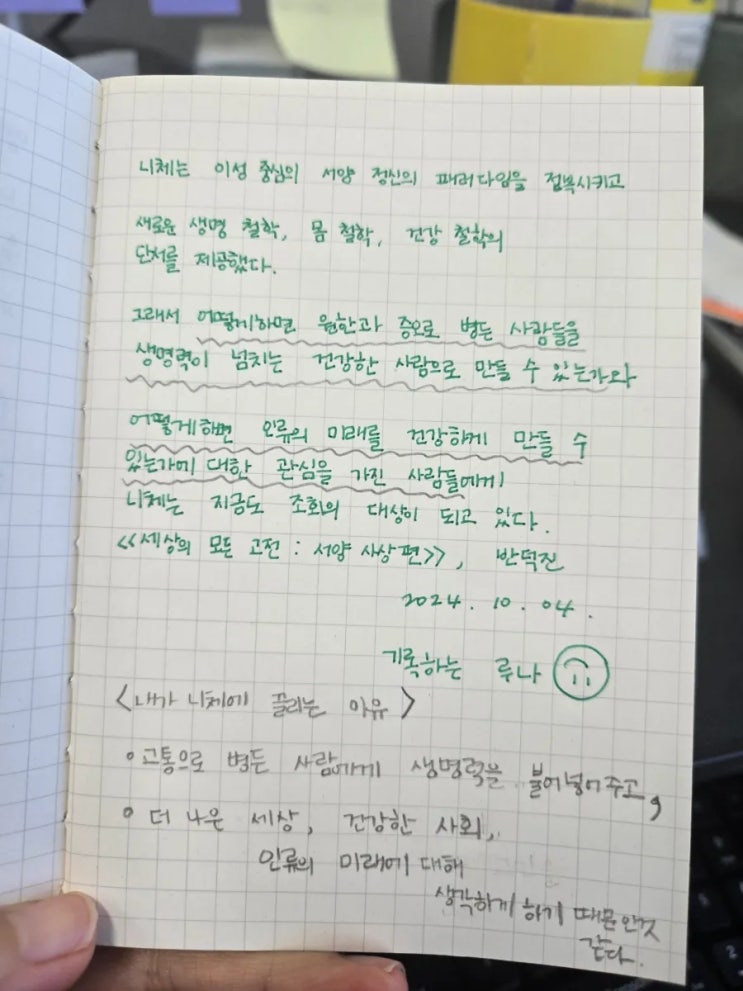 니체는 이성 중심의 서양 정신의 패러다임을 전복시키고
새로운 생명 철학, 몸 철학, 건강 철학의
단서를 제공했다.
그래서 어떻게하면 원한과 증오로 병든 사람들을
생명력이 넘치는 건강한 사람으로 만들 수 있는가와
어떻게해면 인류의 미래를 건강하게 만들 수
있는가에 대한 관심을 가진 사람들에게
니체는 지금도 조회의 대상이 되고 있다.
<<세상의 모든 고전 : 서양 사상편>>, 반덕진
2024. 10. 04.
기록하는 루나
<내가 니체에 끌리는 이유>
•고통으로 병든 사람에게 생명력을 불어넣어주고,
• 더 나은 세상, 건강한 사회,
인류의 미래에 대해
생각하게 하기 때문인것
같다.